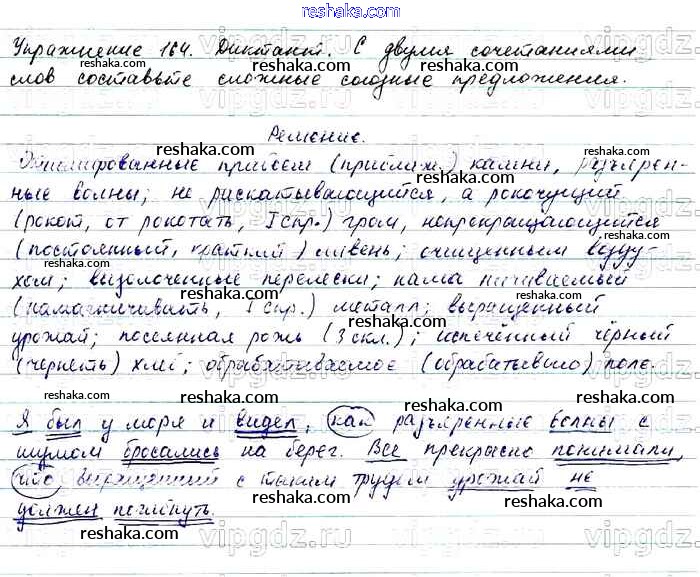 reshaka.com
Упражнение 164. Диктант. С двумя сочетаниями
слов составьте сложные союзные предложения.
Решение.
прибоем (приближ.) камни, разъярен-
ные волны; не раскатывающийся, а рокочущий
(рокот, от рокотать, I спр.) гром, непрекращающийся
(постоянный, краткий) ливень; очищенным возду-
хом; вызолоченные перелески; нама ничиваемый
(намагничивать, I спр.) металл; выращенный
урожай; посеянная рожь (3 скл.); испечённый чёрный
(чернеть) хлеб; обрабатываемое (обрабатывało) поле.
Я был у моря и видел, как разъяренные волны с
шумом бросались на берег. Все прекрасно понимали,
что выращенный с таким трудом урожай не
должен погибнуть.